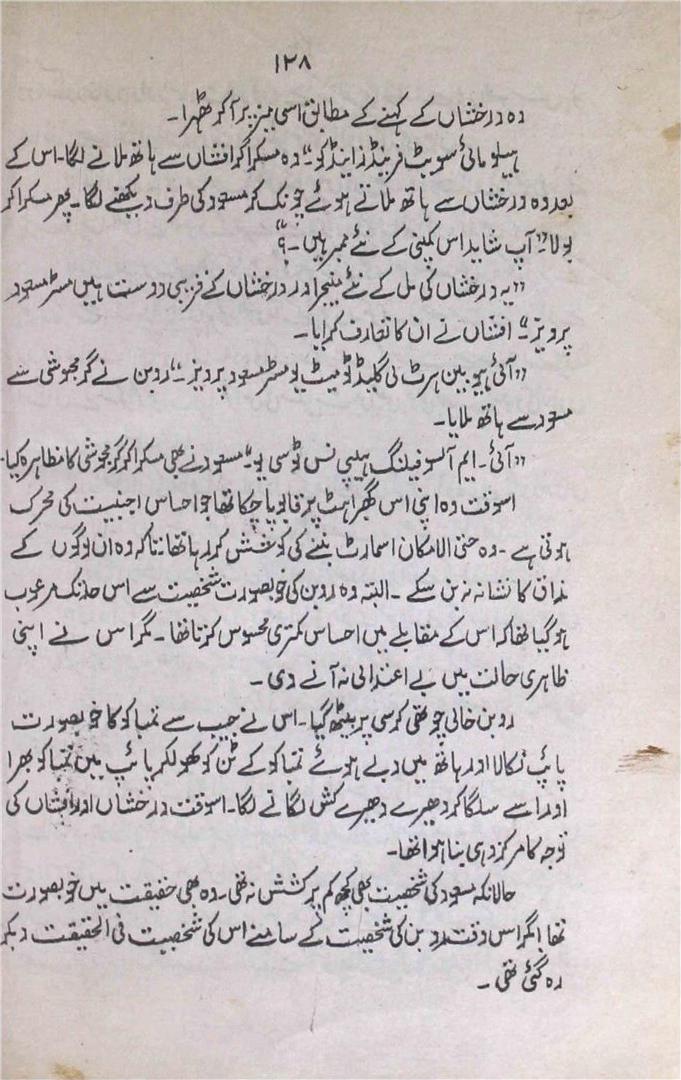 ۱۲۸
وہ درخشاں کے کہنے کے مطابق اسی میز پر آکر ٹھہرا۔
ہیلو مائی سویٹ فرینڈز اینڈ کو۔“ وہ مسکرا کر افشاں سے ہاتھ ملانے لگا۔ اس کے
بعد وہ درخشاں سے ہاتھ ملاتے ہوئے چونک کر مسعود کی طرف دیکھنے لگا۔ پھر مسکرا کر
بولا۔ ”آپ شاید اس کمپنی کے نئے ممبر ہیں۔؟“
”یہ درخشاں کی مل کے نئے منیجر اور درخشاں کے قریبی دوست ہیں مسٹر مسعود
پرویز۔“ افشاں نے ان کا تعارف کرایا۔
”آئی ہیو بین ہرٹ لی گلیڈ ٹو میٹ یو مسٹر مسعود پرویز۔“ روبن نے گرمجوشی سے
مسعود سے ہاتھ ملایا۔
”آئی۔ ایم آلسو فیلنگ ہیپی نس ٹو سی یو۔“ مسعود نے بھی مسکرا کر گرمجوشی کا مظاہرہ کیا۔
اسوقت وہ اپنی اس گھبراہٹ پر قابو پا چکا تھا جو احساس اجنبیت کی محرک
ہوتی ہے۔ وہ حتی الامکان اسمارٹ بننے کی کوشش کر رہا تھا۔ تاکہ وہ ان لوگوں کے
مذاق کا نشانہ نہ بن سکے۔ البتہ وہ روبن کی خوبصورت شخصیت سے اس حد تک مرعوب
ہو گیا تھا کہ اس کے مقابلے میں احساس کمتری محسوس کرتا تھا۔ مگر اس نے اپنی
ظاہری حالت میں بے اعتدالی نہ آنے دی۔
روبن خالی چوتھی کرسی پر بیٹھ گیا۔ اس نے جیب سے تمباکو کا خوبصورت
پائپ نکالا اور ہاتھ میں دبے ہوئے تمباکو کے ٹن کو کھولکر پائپ میں تمباکو بھرا
اور اسے سلگا کر دھیرے دھیرے کش لگانے لگا۔ اسوقت درخشاں اور افشاں کی
توجہ کا مرکز وہی بنا ہوا تھا۔
حالانکہ مسعود کی شخصیت بھی کچھ کم پرکشش نہ تھی۔ وہ بھی حقیقت میں خوبصورت
تھا! مگر اس وقت روبن کی شخصیت کے سامنے اس کی شخصیت فی الحقیقت دبکر
رہ گئی تھی۔